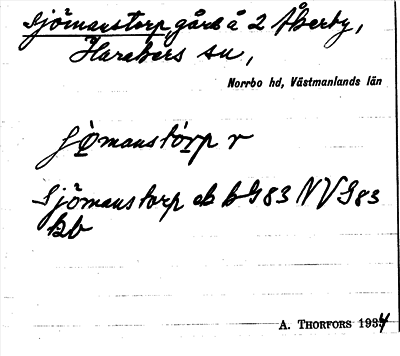 Sjömanstorp, gård å 2 Åkerby,
Harakers sn,
Norrbo hd, Västmanlands län
Sjömanstorp eb bG83 NVG83
bb
A. THORFORS 1934